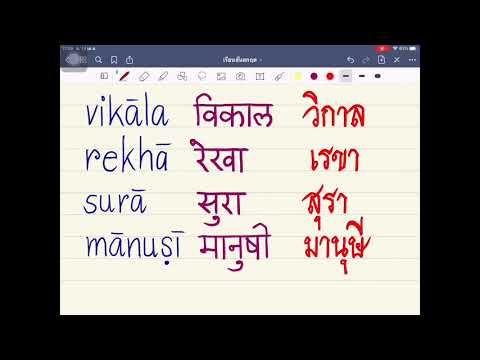 เรียนสันสกฤต
vikāla विकाल วิกาล
rekhā रेखा เรขา
surā सुरा สุรา
mānuṣī मानुषी มานุษี